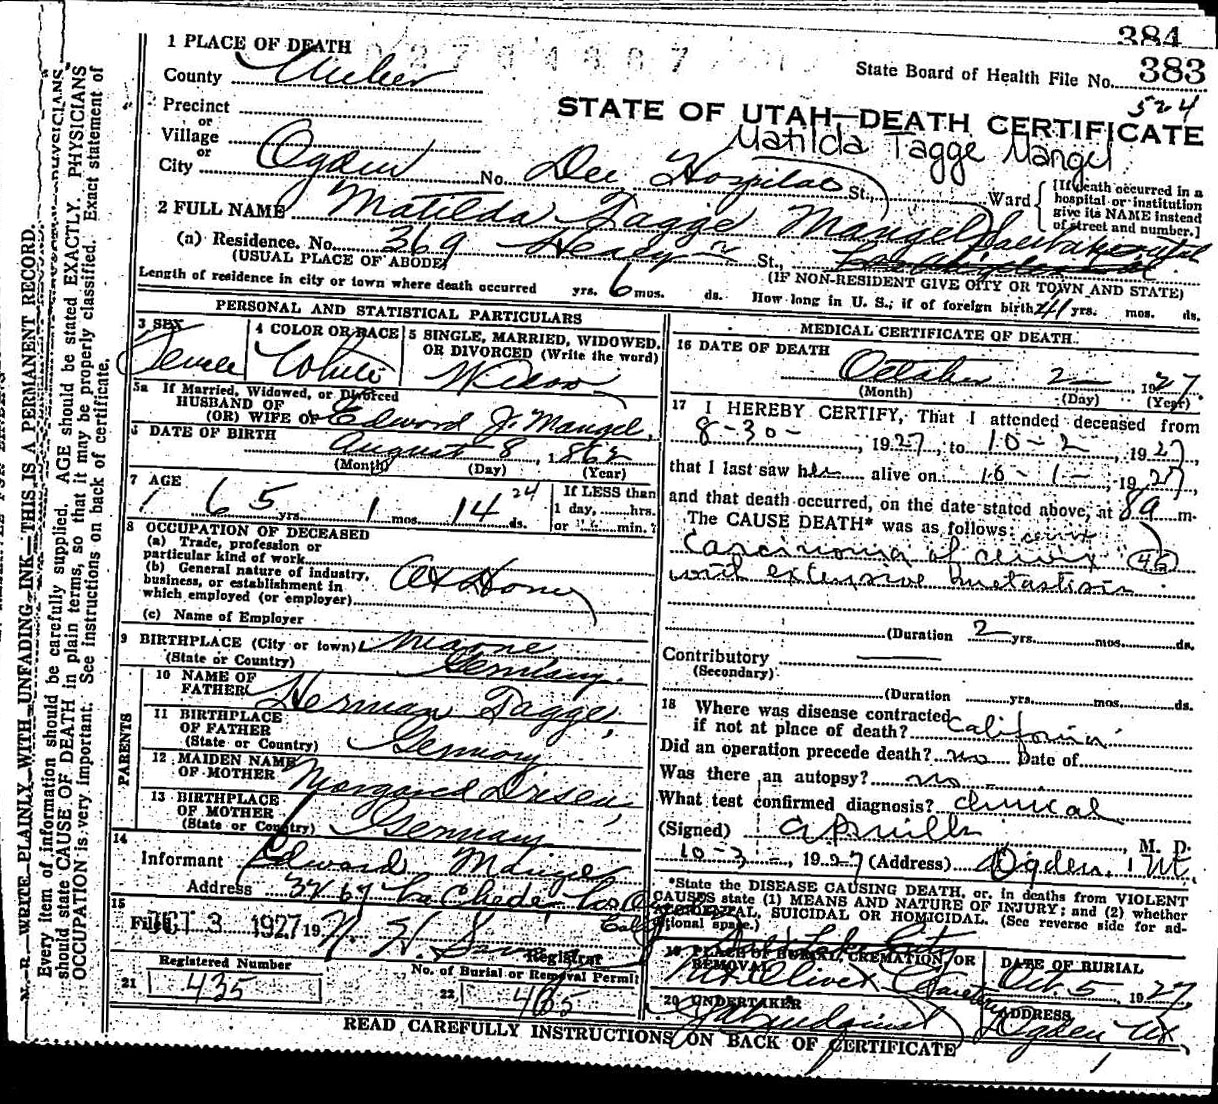 384
1 PLACE OF DEATH
State Board of Health File No. 383
County Weber
524
Precinct
or
STATE OF UTAH—DEATH CERTIFICATE
Village
or
Matilda Tagge Mangel
City Ogden No. Dee Hospital St., Ward
[If death occurred in a hospital or institution give its NAME instead of street and number.]
2 FULL NAME Matilda Tagge Mangel
(a) Residence. No. 369 Healy St.,
(USUAL PLACE OF ABODE)
(IF NON-RESIDENT GIVE CITY OR TOWN AND STATE)
Length of residence in city or town where death occurred yrs. 6 mos. ds. How long in U. S.; if of foreign birth 41 yrs. mos. ds.
PERSONAL AND STATISTICAL PARTICULARS
3 SEX
Female
4 COLOR OR RACE
White
5 SINGLE, MARRIED, WIDOWED, OR DIVORCED (Write the word)
Widow
5a If Married, Widowed, or Divorced
HUSBAND OF
(OR) WIFE OF Edward J. Mangel
6 DATE OF BIRTH
August 8, 1862
(Month) (Day) (Year)
7 AGE
65 yrs. 1 mos. 14 24 ds.
If LESS than
1 day, hrs.
or min.
8 OCCUPATION OF DECEASED
(a) Trade, profession or
particular kind of work
(b) General nature of industry,
business, or establishment in
which employed (or employer)
At Home
(c) Name of Employer
9 BIRTHPLACE (City or town)
(State or Country) Germany
PARENTS
10 NAME OF
FATHER Herman Tagge
11 BIRTHPLACE
OF FATHER
(State or Country) Germany
12 MAIDEN NAME
OF MOTHER Margaret
13 BIRTHPLACE
OF MOTHER
(State or Country) Germany
14
Informant Edward Mangel
Address
15
Filed OCT 3 1927 19
Registrar
Registered Number
21 435
No. of Burial or Removal Permit
22 465
MEDICAL CERTIFICATE OF DEATH
16 DATE OF DEATH
October 2 1927
(Month) (Day) (Year)
17 I HEREBY CERTIFY, That I attended deceased from
8-30-, 1927, to 10-2, 1927
that I last saw her alive on 10-1-, 1927
and that death occurred, on the date stated above, at 8a m.
The CAUSE DEATH* was as follows: cervix
Carcinoma of cervix
with extensive metastasis
(Duration 2 yrs. mos. ds.
Contributory
(Secondary)
(Duration yrs. mos. ds.
18 Where was disease contracted
if not at place of death? California
Did an operation precede death? no Date of
Was there an autopsy? no
What test confirmed diagnosis? clinical
(Signed) M. D.
10-3-, 1927 (Address) Ogden, Ut.
*State the DISEASE CAUSING DEATH, or, in deaths from VIOLENT
CAUSES state (1) MEANS AND NATURE OF INJURY; and (2) whether
ACCIDENTAL, SUICIDAL OR HOMICIDAL. (See reverse side for ad-
ditional space.)
Salt Lake City
19 PLACE OF BURIAL, CREMATION, OR
REMOVAL
Mt. Olivet Cemetery
DATE OF BURIAL
Oct. 5, 1927
20 UNDERTAKER
ADDRESS
Ogden Ut.
READ CAREFULLY INSTRUCTIONS ON BACK OF CERTIFICATE
N. B.—WRITE PLAINLY WITH UNFADING INK—THIS IS A PERMANENT RECORD.
Every item of information should be carefully supplied. AGE should be stated EXACTLY. PHYSICIANS
should state CAUSE OF DEATH in plain terms, so that it may be properly classified. Exact statement of
OCCUPATION is very important. See instructions on back of certificate.